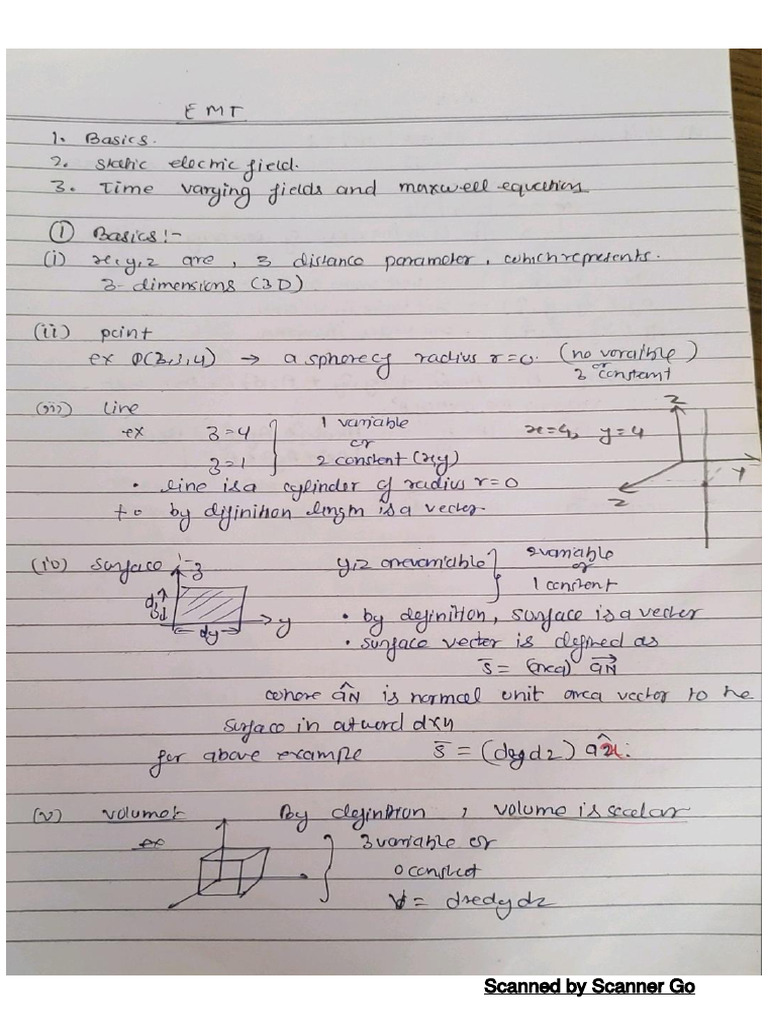 EMT
1. Basics.
2. Static electric field.
3. Time varying fields and maxwell equations
① Basics:-
(i) x, y, z are, 3 distance parameter, which represents.
3-dimensions (3D)
(ii) point
ex P(3,3,4) → a sphere of radius r=0. (no varaible)
or
3 constant
(iii) line
ex 3=4 } 1 variable x=4, y=4
or
3=1 2 constent (x,y)
z
y
z
• line is a cylinder of radius r=0
by difinition length is a vector.
(iv) Surface :- y,z are variable } 2 variable
or
1 constent
z
dz
y
dy
• by definition, surface is a vector
• surface vector is defined as
s̄ = (area) aN
where âN is normal unit area vector to the
surface in
for above example s̄ = (dy dz) âx.
(v) volume:- By definition, volume is scalar
ex } 3 variable or
0 constet
V = dxdydz
Scanned by Scanner Go